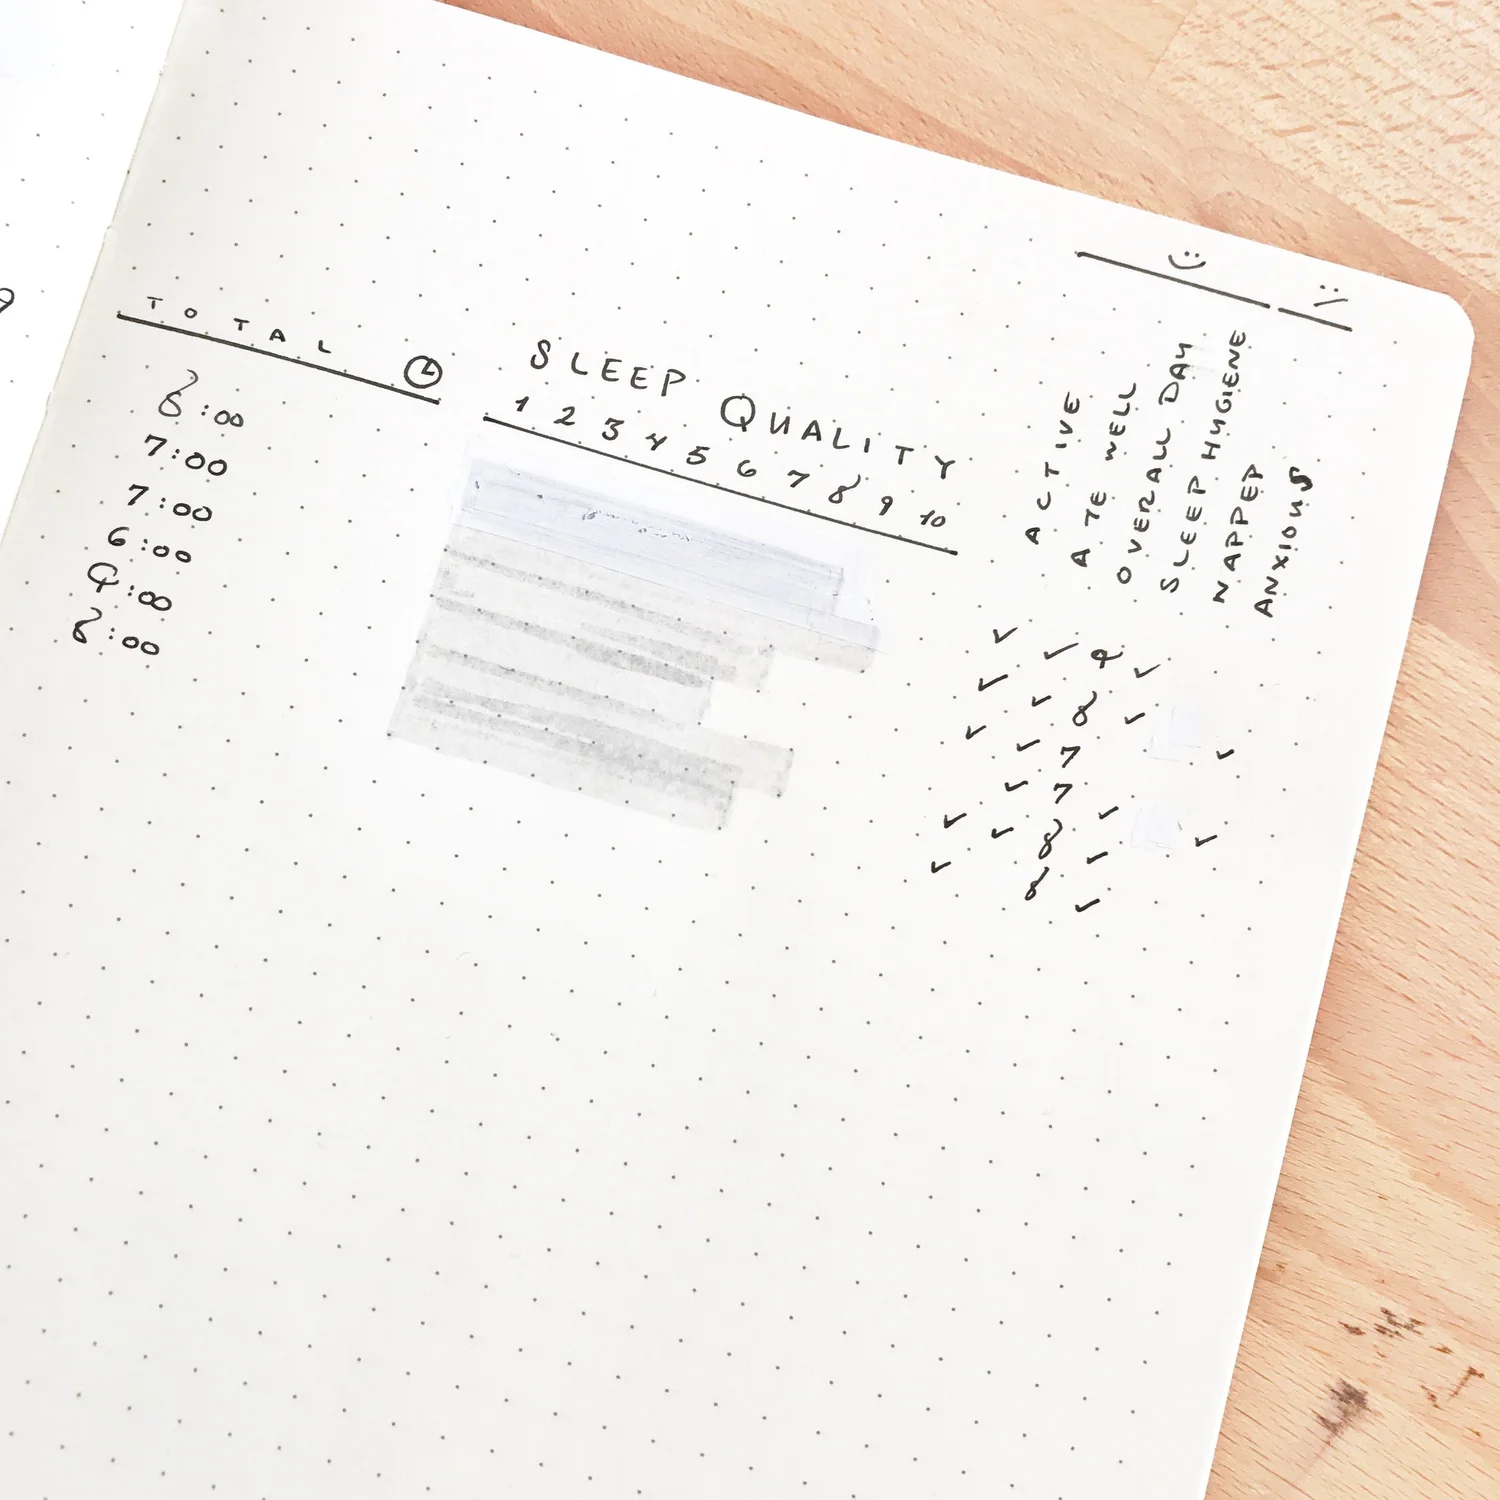 TOTAL
8:00
7:00
7:00
6:00
9:00
8:00
SLEEP QUALITY
1 2 3 4 5 6 7 8 9 10
ACTIVE
ATE WELL
OVERALL DAY
SLEEP HYGIENE
NAPPED
ANXIOUS
✓ ✓ 9 ✓
✓ ✓ 8 ✓
✓ ✓ 7 ✓
✓ 7 ✓
✓ ✓ 8 ✓ ✓
✓ 8 ✓